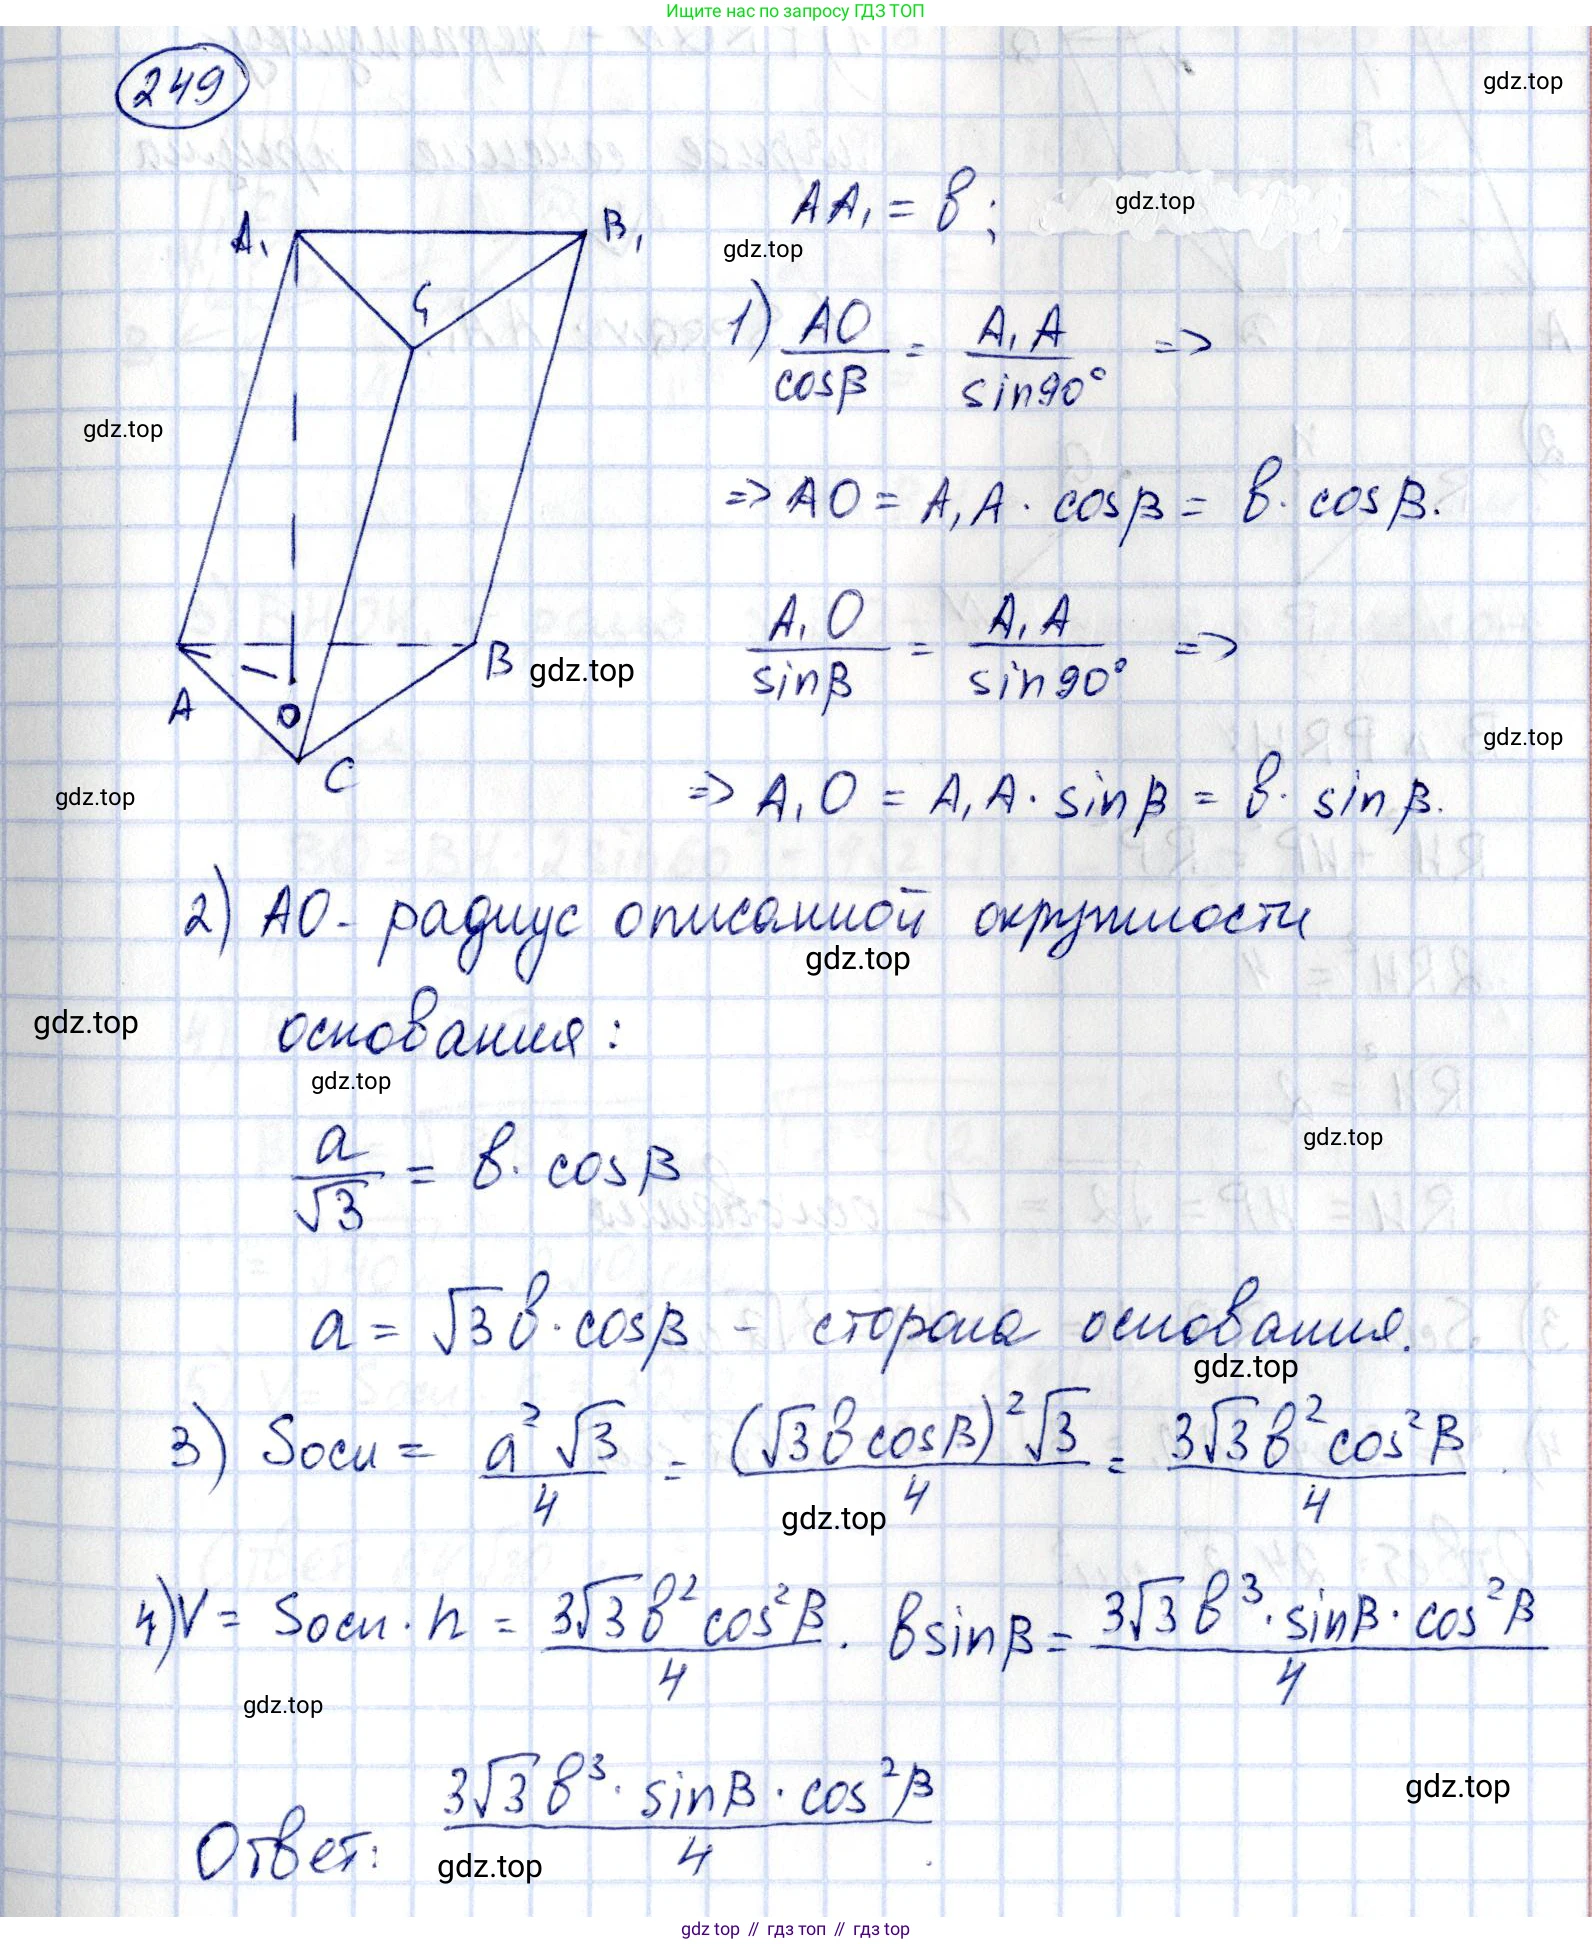 Ищите нас по запросу ГДЗ ТОП
249
gdz.top
AA₁ = b;
gdz.top
gdz.top
A₁
B₁
C₁
1) AO/cosβ = A₁A/sin90° =>
gdz.top
=> AO = A₁A · cosβ = b · cosβ.
A₁O/sinβ = A₁A/sin90° =>
B
gdz.top
A
O
C
gdz.top
gdz.top
=> A₁O = A₁A · sinβ = b · sinβ.
2) AO - радиус описанной окружности
gdz.top
gdz.top
основания:
gdz.top
gdz.top
a/√3 = b · cosβ
a = √3b · cosβ - сторона основания.
gdz.top
3) Sосн = a²√3/4 = (√3b cosβ)²√3/4 = 3√3b²cos²β/4.
gdz.top
4) V = Sосн · h = 3√3b²cos²β/4 · b sinβ = 3√3b³ · sinβ · cos²β/4
gdz.top
Ответ: 3√3b³ · sinβ · cos²β/4.
gdz.top
gdz.top
gdz.top // гдз топ // гдз top